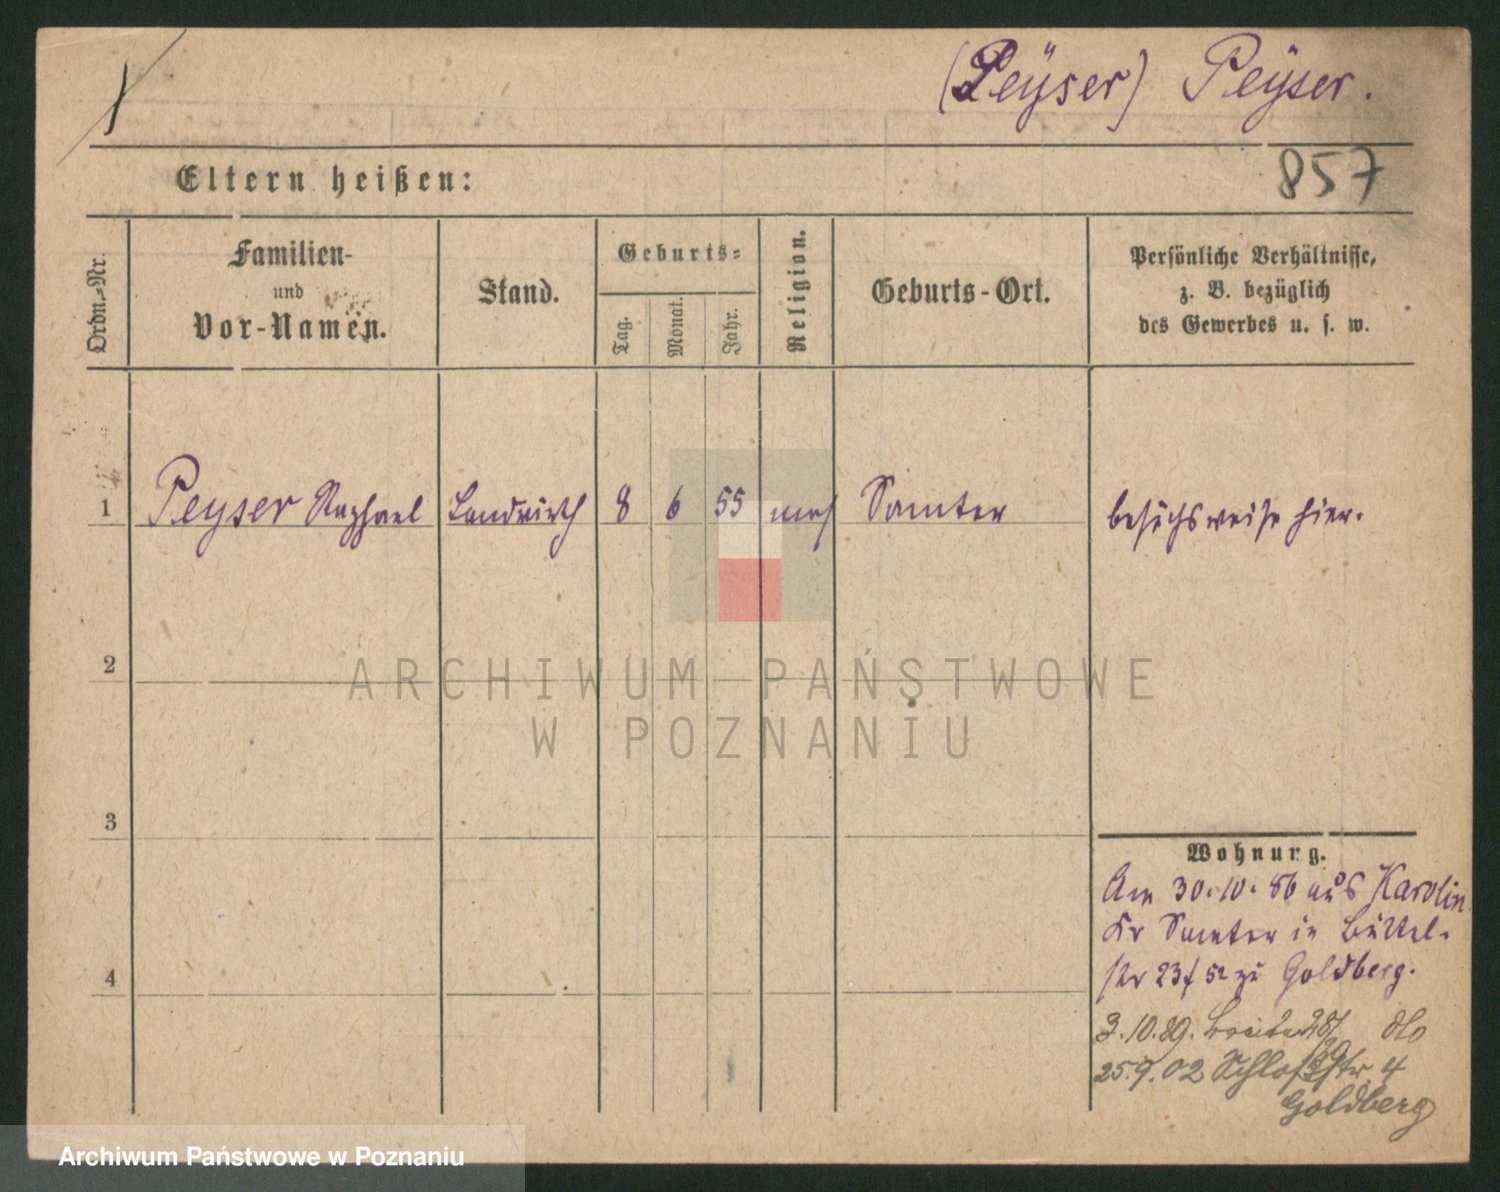 (Peÿser) Peÿser.
857
Eltern heißen:
Ordn.-Nr.
Familien-
und
Vor-Namen.
Stand.
Geburts-
Tag.
Monat.
Jahr.
Religion.
Geburts-Ort.
Persönliche Verhältnisse,
z. B. bezüglich
des Gewerbes u. s. w.
1 Peyser Raphael Landwirth 8 6 55 mos Samter besuchsweise hier.
2
3
4
Wohnung.
Am 30.10.86 aus Karolin
Kr Samter in Büttel-
str 23 bei Goldberg.
3.10.89. Breitestr 28/29 dto
25.9.02 Schloßstr. 4
Goldberg
ARCHIWUM PAŃSTWOWE
W POZNANIU
Archiwum Państwowe w Poznaniu